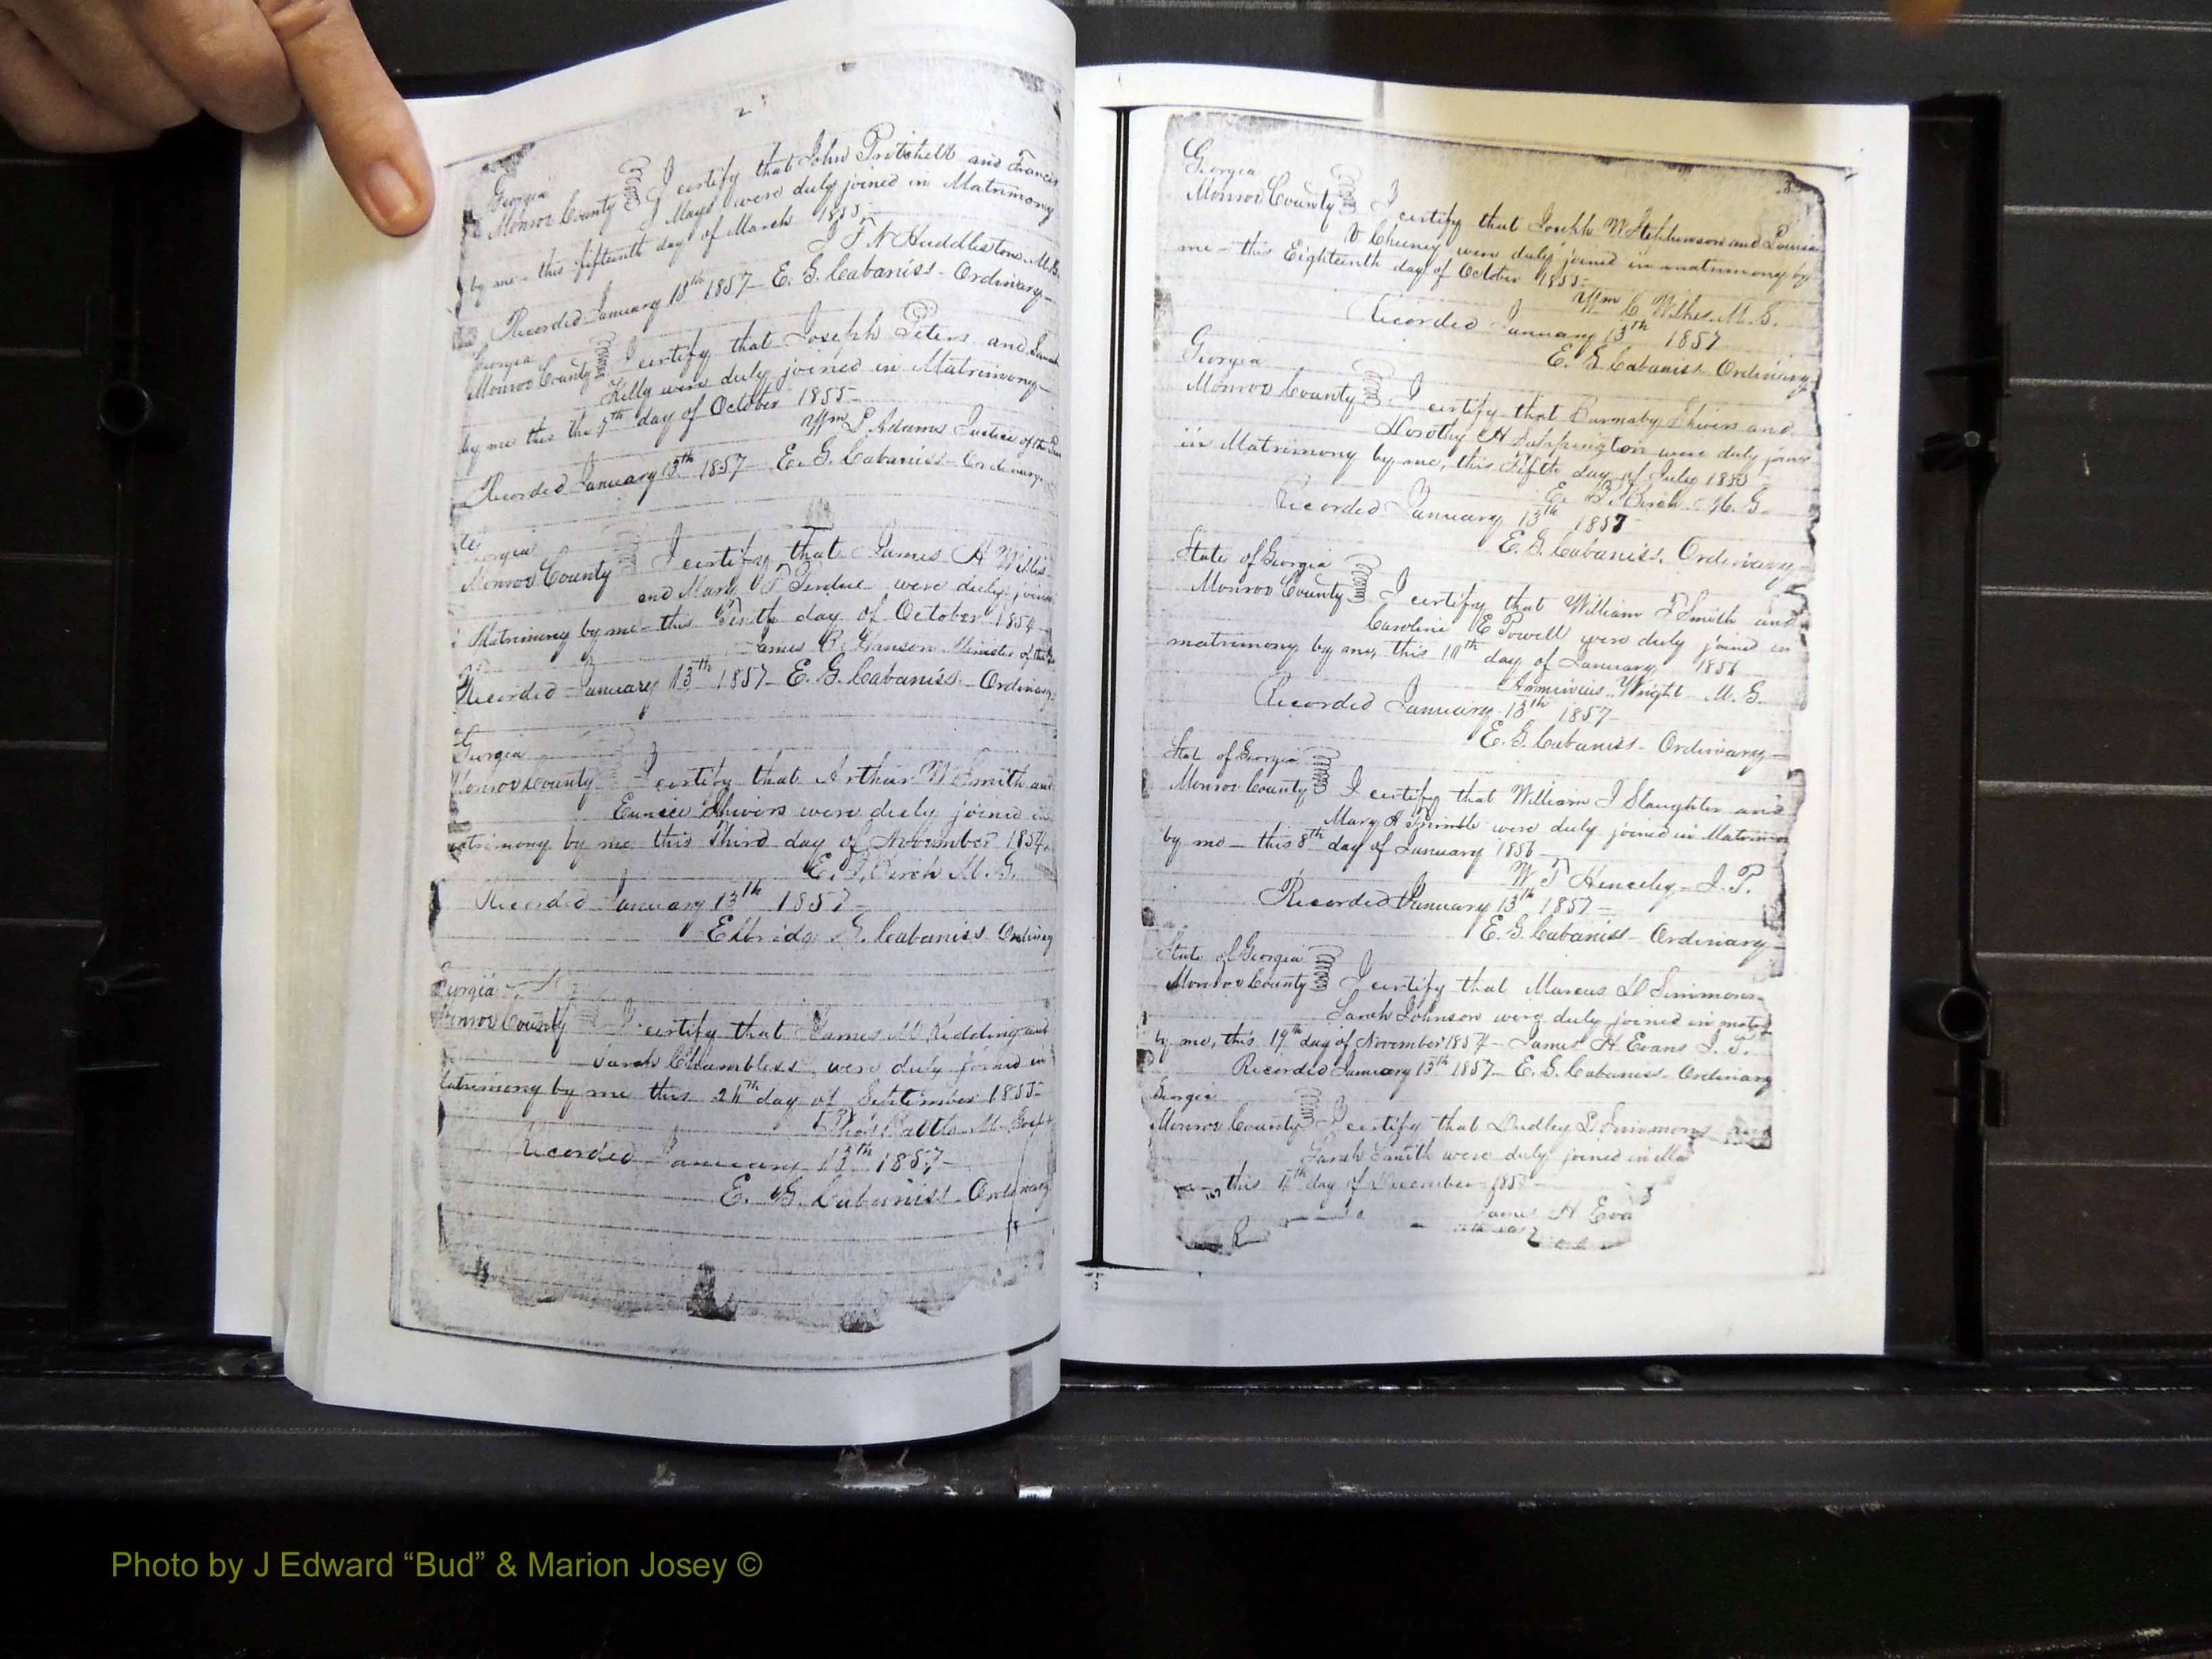 2
Georgia
Monroe County I certify that John Pritchell and Francis
J Mays were duly joined in Matrimony
by me this fifteenth day of March 1855
J F N Huddleston M.G.
Recorded January 13th 1857 E. G. Cabaniss Ordinary
Georgia
Monroe County I certify that Joseph Peters and Sarah
Kelly were duly joined in Matrimony
by me this the 7th day of October 1855
Wm L Adams Justice of the
Recorded January 13th 1857 E. G. Cabaniss Ordinary
Georgia
Monroe County I certify that James A Willis
and Mary F Perdue were duly joined
Matrimony by me this Tenth day of October 1854
James B. Hanson Minister of the
Recorded January 13th 1857 E. G. Cabaniss Ordinary
Georgia
Monroe County I certify that Arthur W Smith and
Eunice Shivers were duly joined in
matrimony by me this Third day of November 1854
E. J. Birch M. G.
Recorded January 13th 1857
Elbridge G. Cabaniss Ordinary
Georgia
Monroe County I certify that James M Redding and
Sarah Chambless were duly joined in
Matrimony by me this day of September 1855
Battle M. Gosp
Recorded January 13th 1857
E. G. Cabaniss Ordinary
Georgia
Monroe County I certify that Joseph W Stephenson and Louisa
V Cheney were duly joined in matrimony by
me this Eighteenth day of October 1855
Wm C Wilkes M. G.
Recorded January 13th 1857
E. G Cabaniss Ordinary
Georgia
Monroe County I certify that Barnaby Shivers and
Dorothy H Sappington were duly join
in Matrimony by me, this Fifth day of July 1855
E. J. Birch M. G.
Recorded January 13th 1857
E. G. Cabaniss. Ordinary
State of Georgia
Monroe County I certify that William F Smith and
Caroline E Powell were duly joined in
matrimony by me, this 10th day of January, 1856
Arminius Wright M. G.
Recorded January 13th 1857
E. G. Cabaniss Ordinary
State of Georgia
Monroe County I certify that William J Slaughter and
Mary A Trimble were duly joined in Matrimo
by me this 8th day of January 1856
W T Henceley J. P.
Recorded January 13th 1857
E. G. Cabaniss Ordinary
State of Georgia
Monroe County I certify that Marcus D Simmons
Sarah Johnson were duly joined in mat
by me, this 19th day of November 1857 James H Evans J. P.
Recorded January 13th 1857 E. G. Cabaniss Ordinary
Georgia
Monroe County I certify that Dudley L Simmons and
Sarah Smith were duly joined in Ma
this day of December 185
James H Eva
R
Photo by J Edward “Bud” & Marion Josey ©